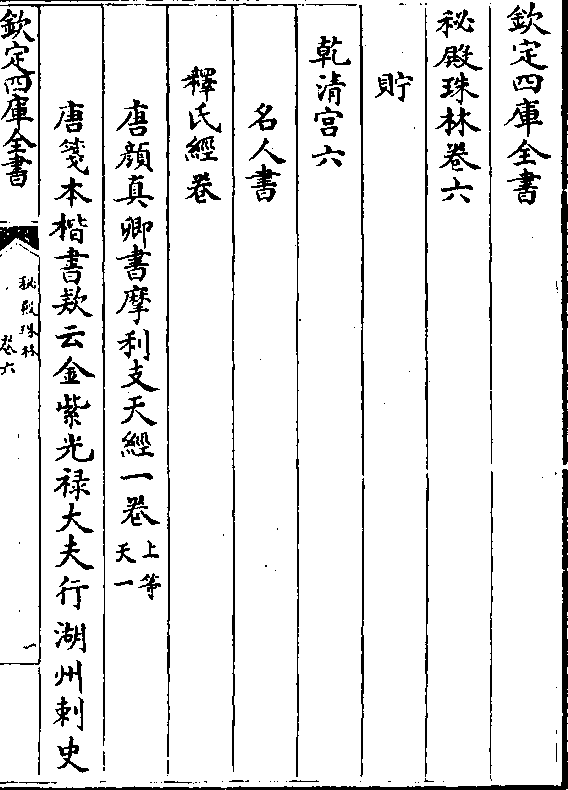 欽定四庫全書
秘殿珠林卷六
貯
乾清宮六
名人書
釋氏經卷
唐顔真卿書摩利支天經一卷上等天一
唐箋本楷書款云金紫光禄大夫行湖州刺史
欽定四庫全書
秘殿珠林
卷六
一